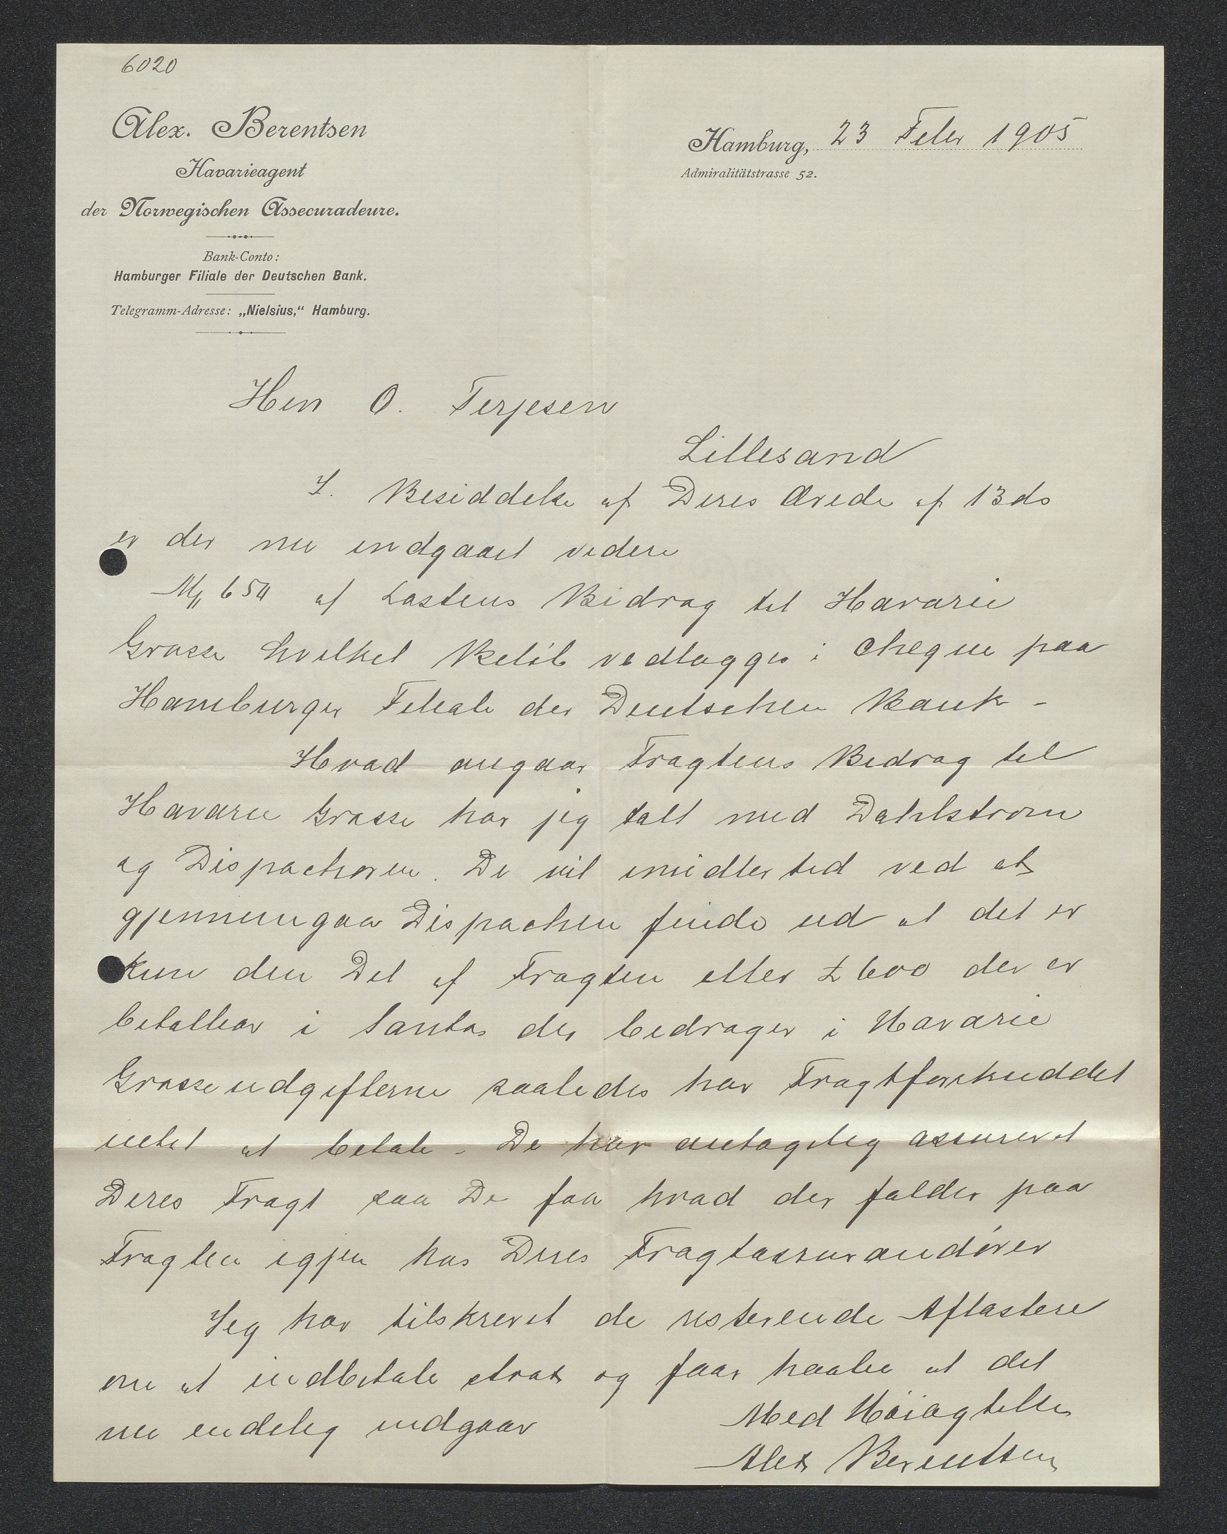 6020
Alex. Berentsen
Havarieagent
der Norwegischen Assecuradeure.
Bank-Conto:
Hamburger Filiale der Deutschen Bank.
Telegramm-Adresse: „Nielsius,“ Hamburg.
Hamburg, 23 Febr 1905
Admiralitätstrasse 52.
Herr O. Terjesen
Lillesand
I Besiddelse af Deres Ærede af 13 ds
er der nu indgaaet videre
af Lastens Bidrag til Havarie
Grosse hvilket Beløb vedlægges i Cheque paa
Hamburger Filiale der Deutschen Bank -
Hvad angaar Fragtens Bidrag til
Havarie Grosse har jeg talt med Dahlstrøm
og Dispachøren. De vil imidlertid ved at
gjennemgaa Dispachen finde ud at det er
kun den Del af Fragten eller £ 600 der er
betalbar i Santos der bidrager i Havarie
Grosse udgifterne saaledes har Fragtforskuddet
intet at betale - De har antagelig assureret
Deres Fragt saa De faa hvad der falder paa
Fragten igjen hos Deres Fragtassurandører
Jeg har tilskrevet de resterende Aflastere
om at indbetale strax og faar haabe at det
nu endelig indgaar
Med Høiagtelse
Alex Berentsen